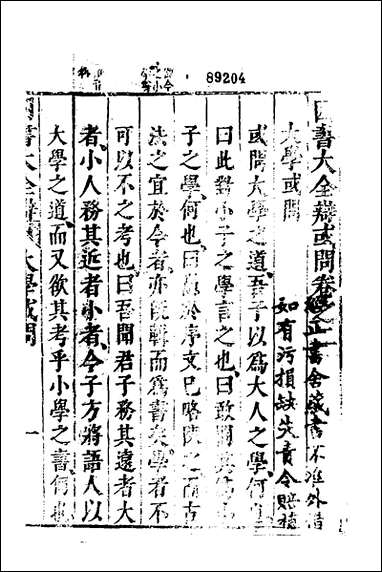 89204
四書大全辯或問卷之一
經正書舍藏書不准外借
如有污損缺失責令賠補
大學或問
或問大學之道吾子以爲大人之學何也
曰此對小子之學言之也曰敢問其爲小
子之學何也曰愚於序文已略陳之而古
法之宜於今者亦旣輯而爲書矣學者不
可以不之考也曰吾聞君子務其遠者大
者小人務其近者小者今子方將語人以
大學之道而又欲其考乎小學之書何也
四書大全辯 大學或問
一